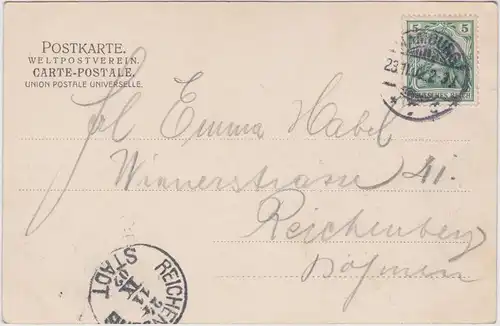 POSTKARTE.
WELTPOSTVEREIN.
CARTE-POSTALE.
UNION POSTALE UNIVERSELLE.
5 5
HAMBURG
Frl Emma Habel
Wienerstrasse 41.
Reichenberg
Böhmen
REICHENB
STADT